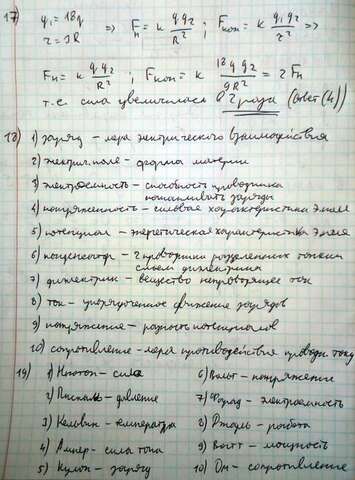 17) q₁ = 18q
r = 3R ⇒ Fн = k q q₂ / R² ; Fкон = k q₁ q₂ / r² ⇒
Fн = k q q₂ / R² ; Fкон = k 18 q q₂ / 9R² = 2 Fн
т.е. сила увеличилась в 2 раза (Ответ (4))
18) 1) заряд – мера электрического взаимодействия
2) электрич. поле – форма материи
3) электроемкость – способность проводника
накапливать заряды
4) напряженность – силовая характеристика Эл.поля
5) потенциал – энергетическая характеристика Эл.поля
6) конденсатор – 2 проводника разделенных тонким
слоем диэлектрика
7) диэлектрик – вещество непроводящее ток
8) ток – упорядоченное движение зарядов
9) напряжение – разность потенциалов
10) сопротивление – мера противодействия проводн. току
19) 1) Ньютон – сила
2) Паскаль – давление
3) Кельвин – температура
4) Ампер – сила тока
5) Кулон – заряд
6) Вольт – напряжение
7) Фарад – электроемкость
8) Джоуль – работа
9) Ватт – мощность
10) Ом – сопротивление